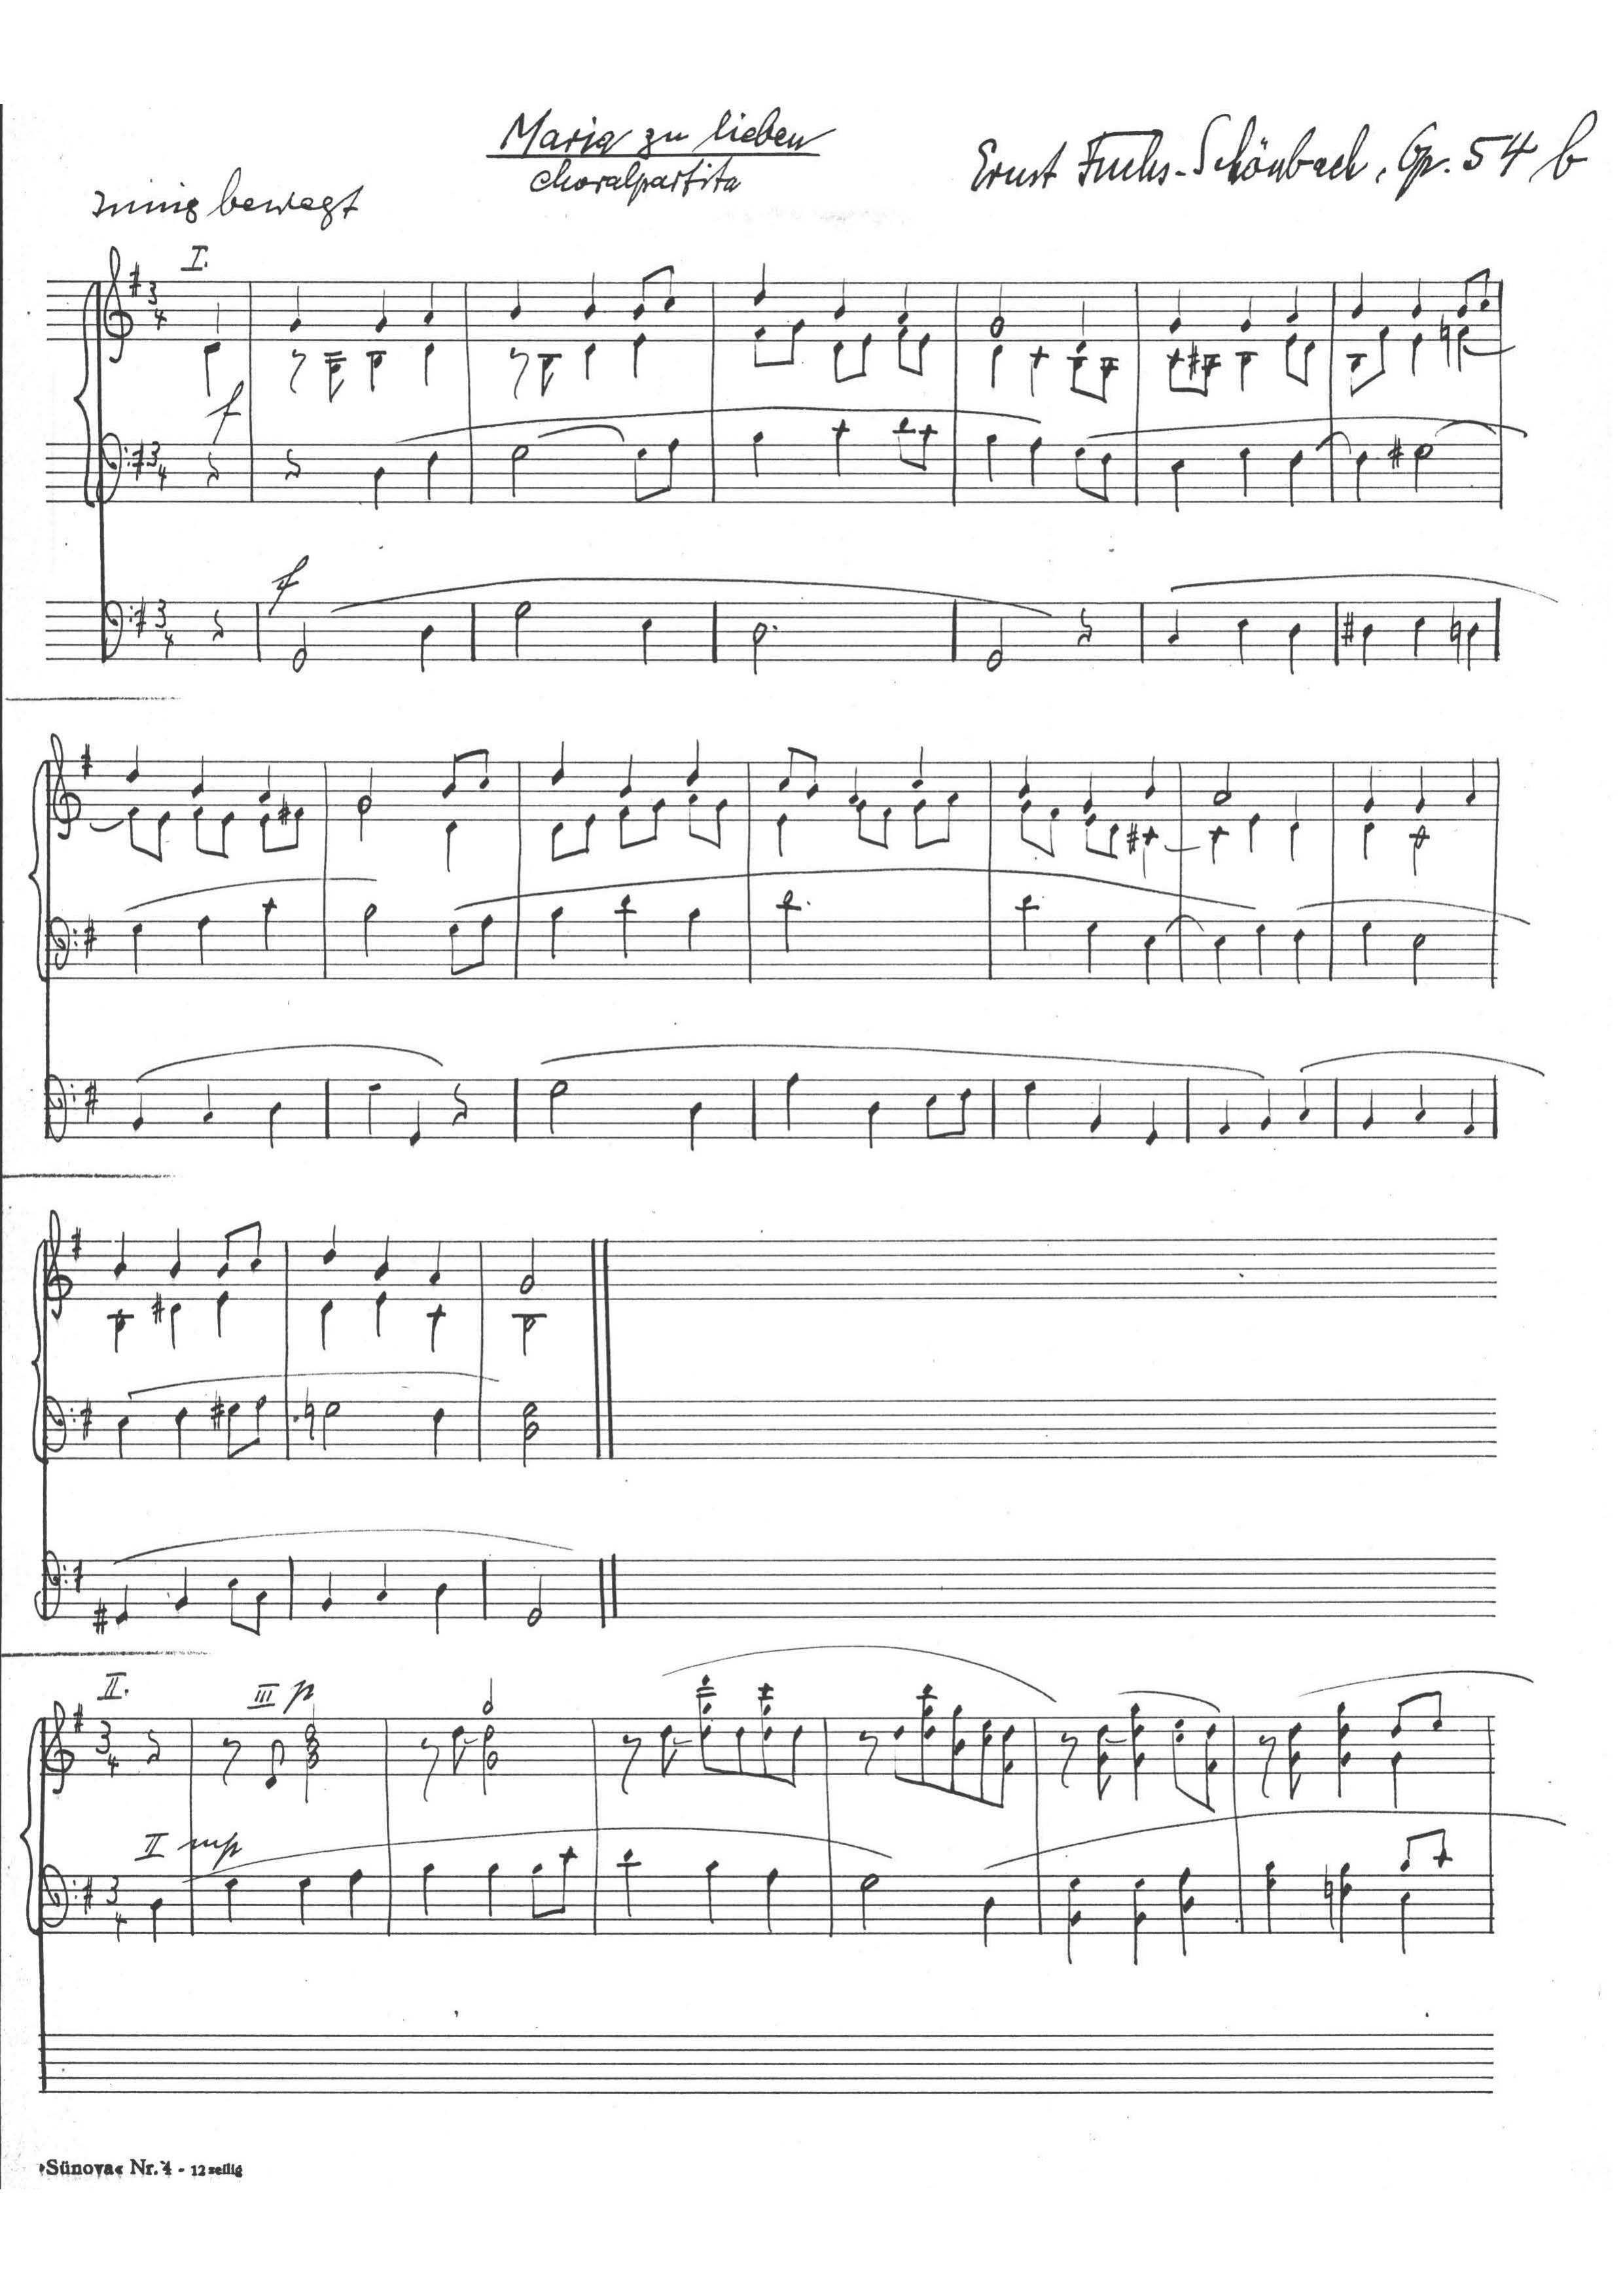 Maria zu lieben
Choralpartita
Ernst Fuchs-Schönbach, Op. 54 b
innig bewegt
I.
3
4
f
3
4
f
3
4
II.
III p
3
4
II mp
3
4
›Sünova‹ Nr. 4 - 12 zeilig